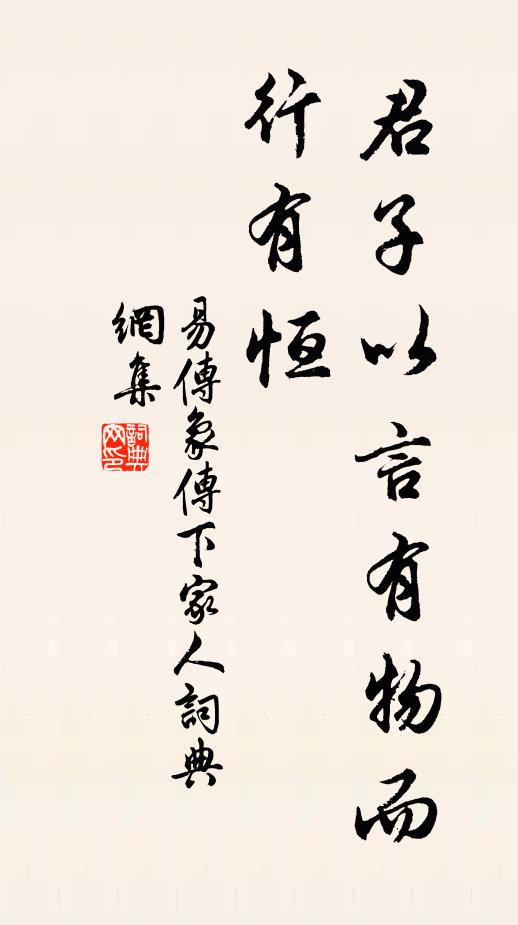 君子以言有物而
行有恆
易傳象傳下家人詞典
網集
詞典
网印